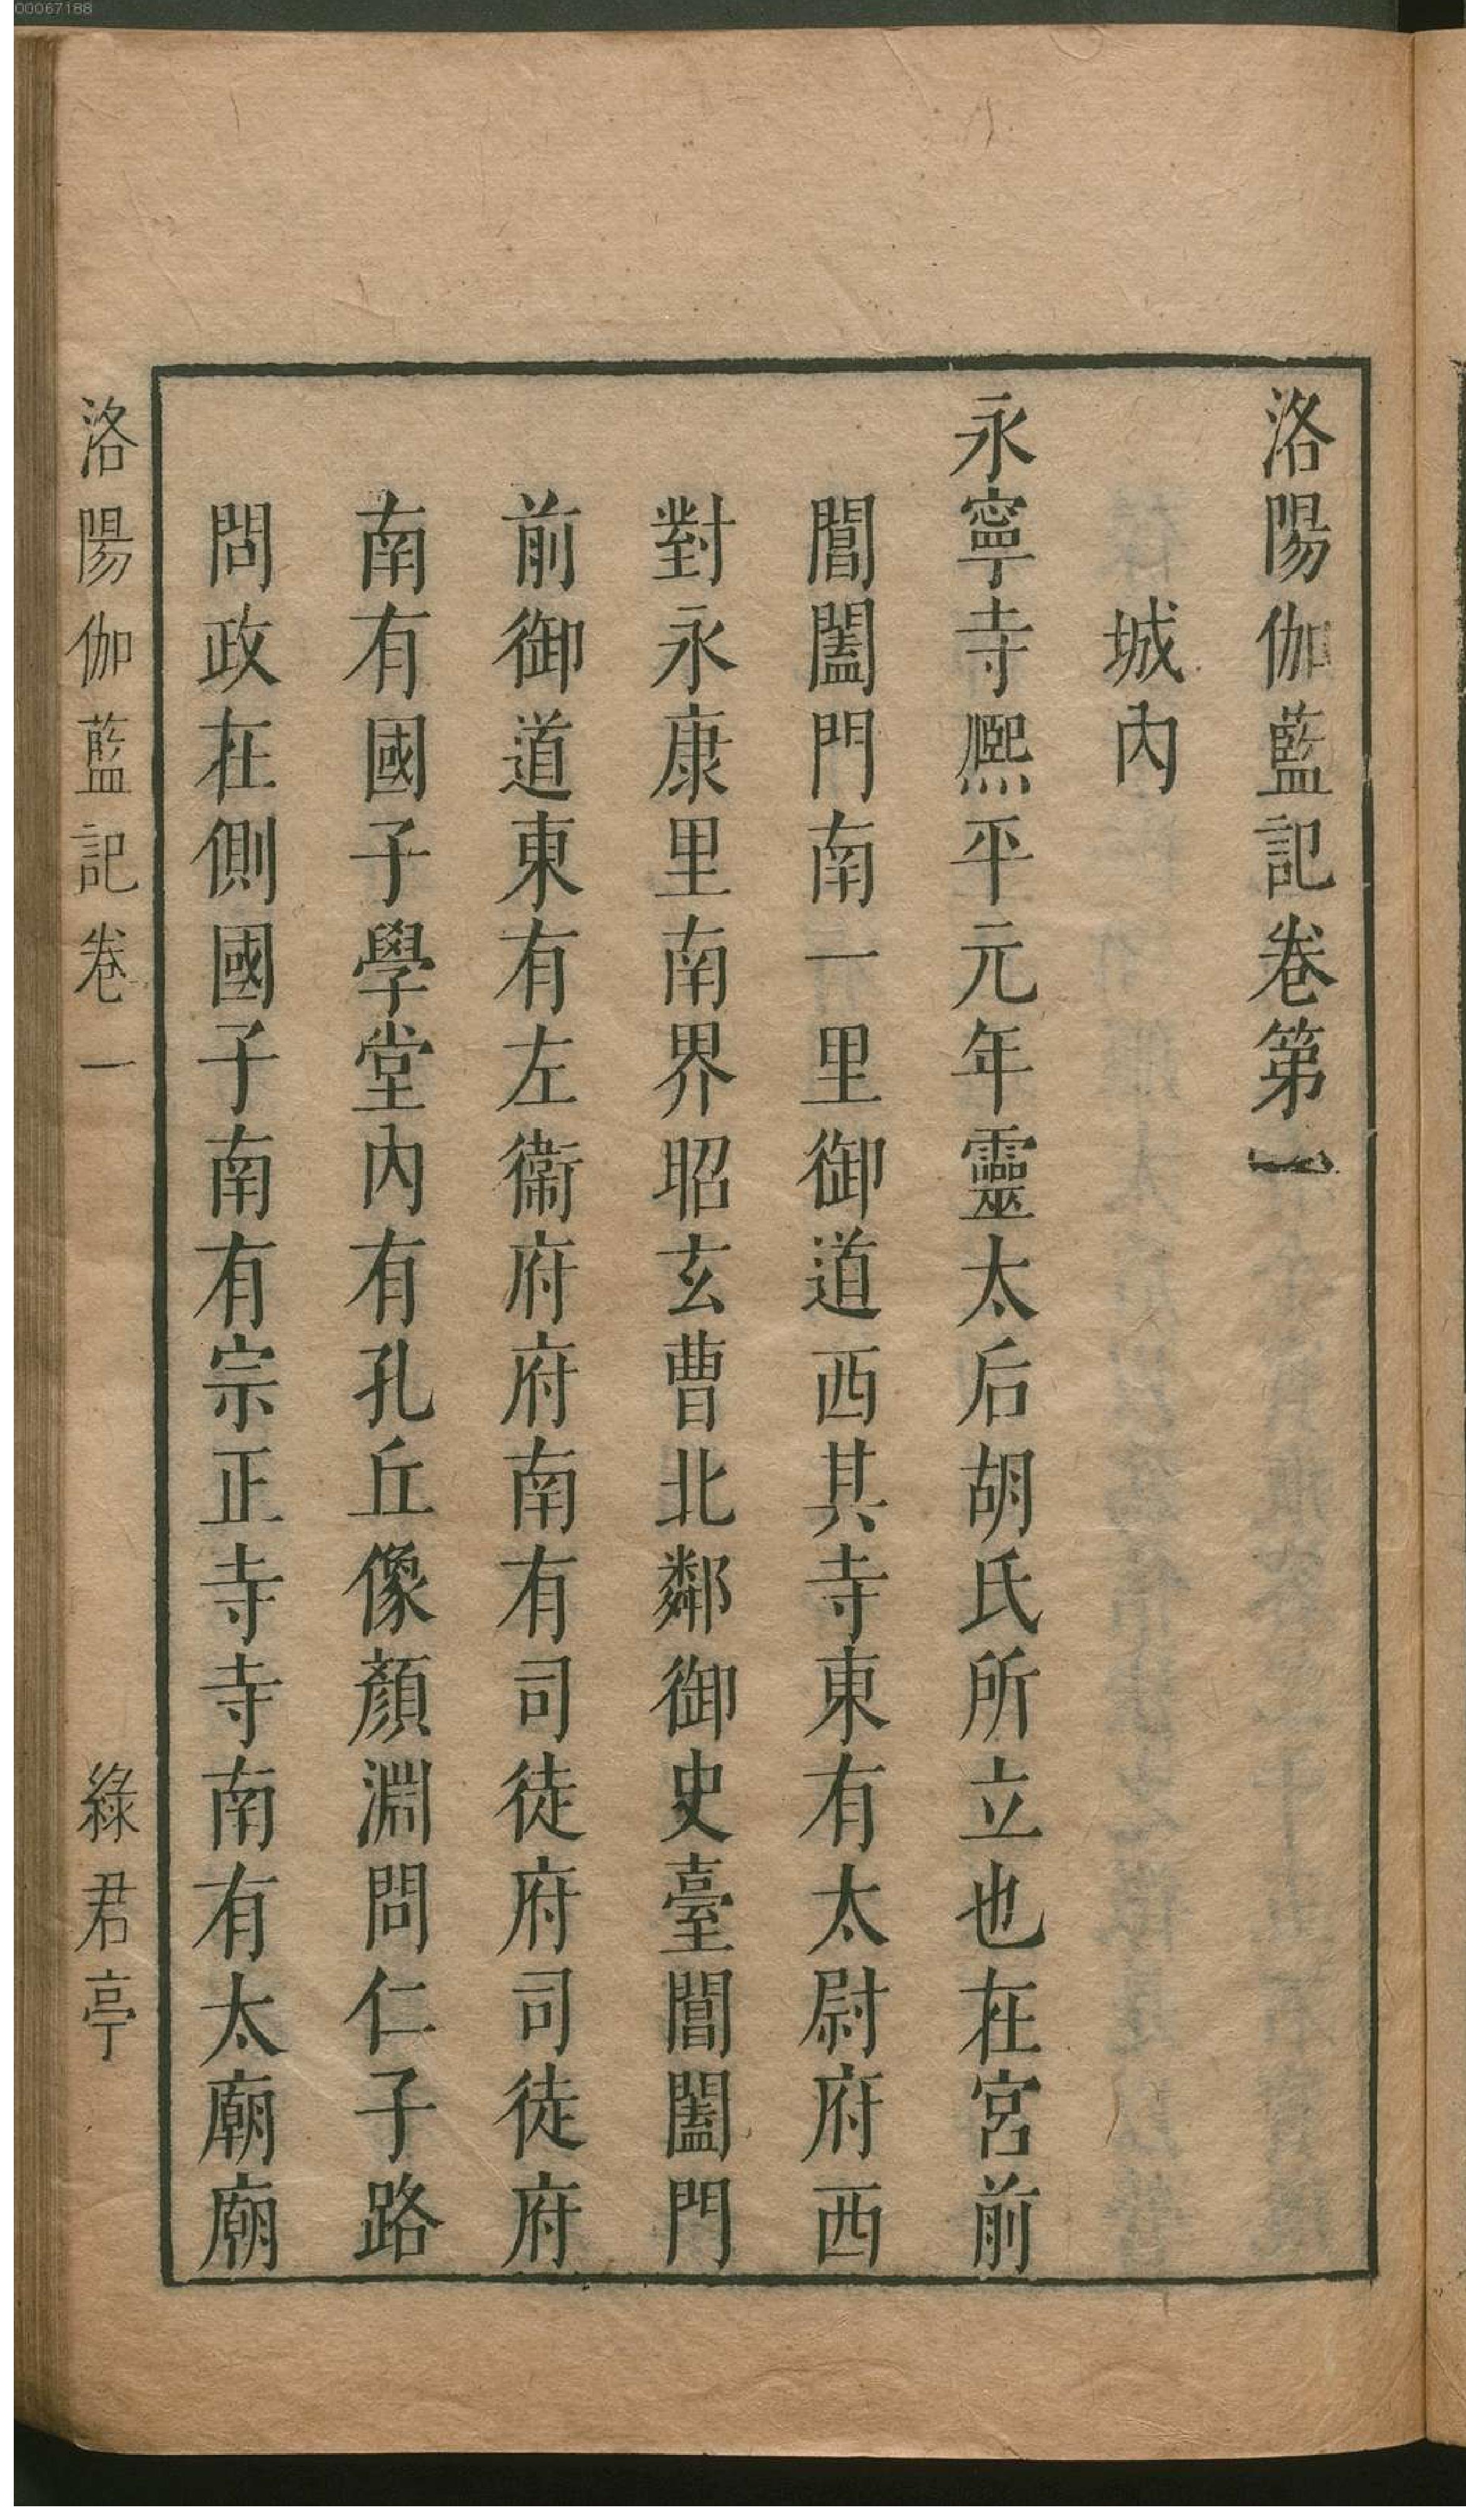 洛陽伽藍記卷第一
城內
永寧寺熈平元年靈太后胡氏所立也在宮前
閶闔門南一里御道西其寺東有太尉府西
對永康里南界昭玄曹北鄰御史臺閶闔門
前御道東有左衞府府南有司徒府司徒府
南有國子學堂內有孔丘像顏淵問仁子路
問政在側國子南有宗正寺寺南有太廟廟
洛陽伽藍記卷一
綠君亭
00067188